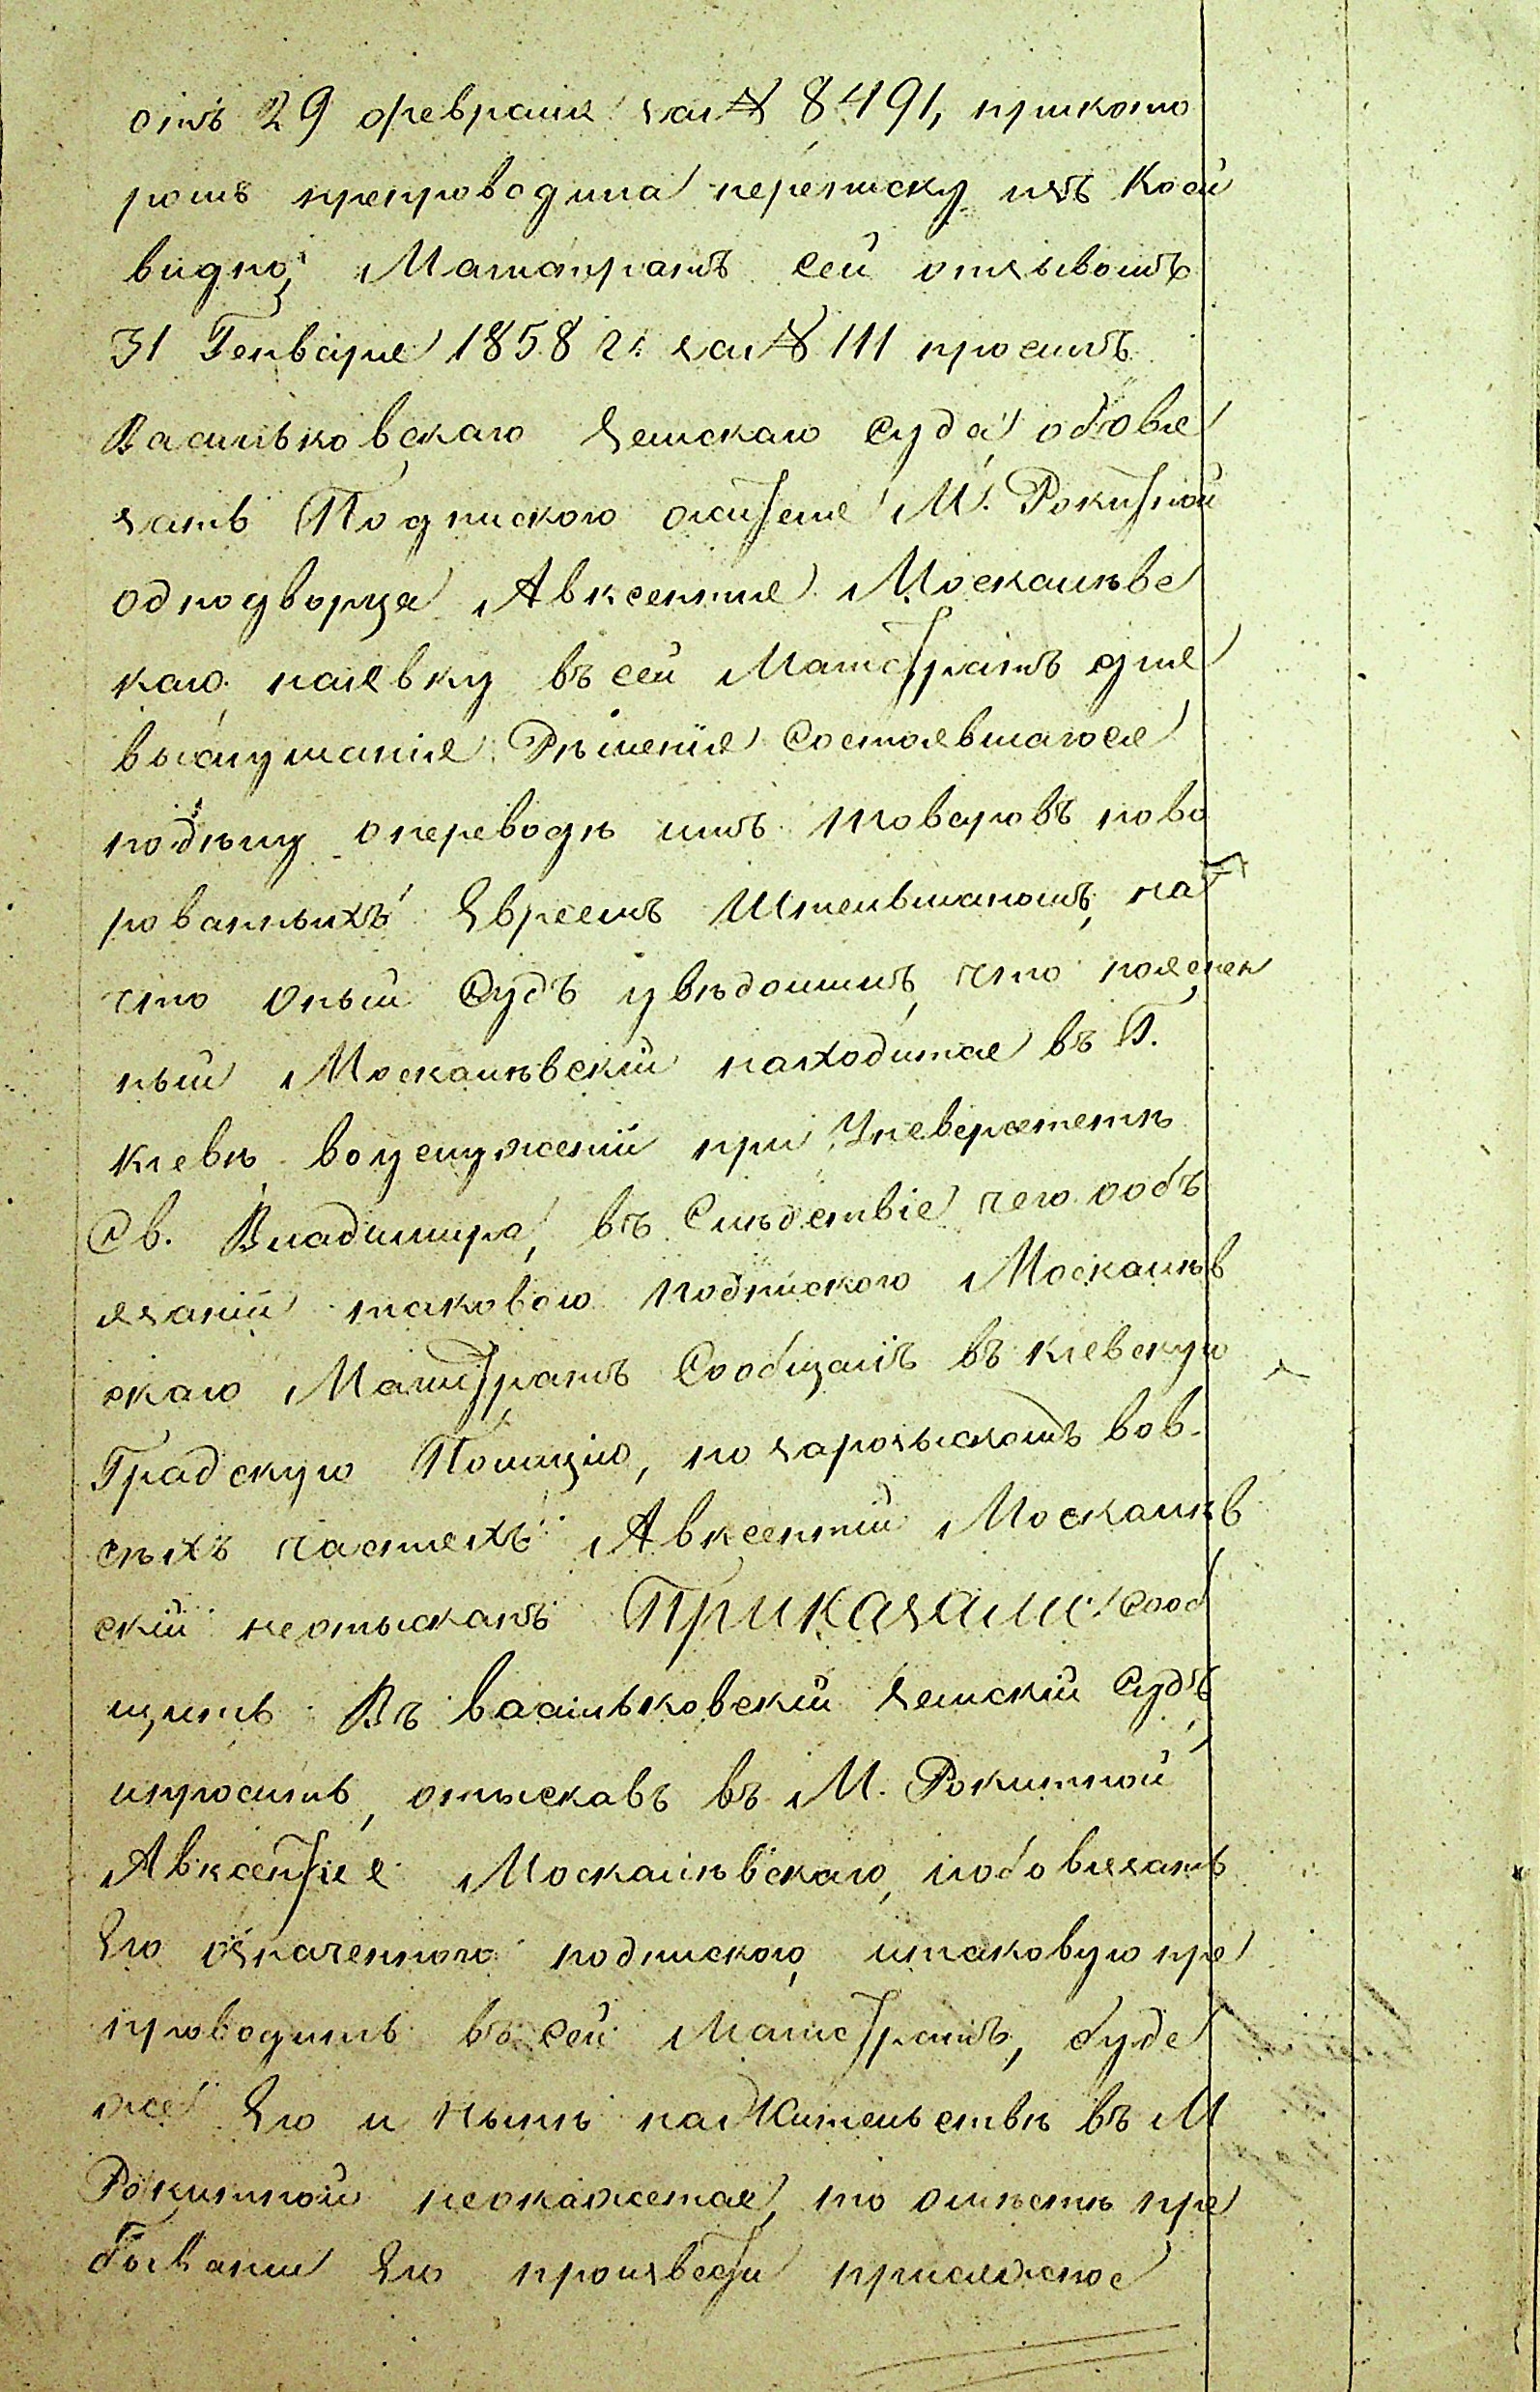 отъ 29 февраля за № 8491, прикото
ромъ препроводила переписку изъ коей
видно, Магистратъ сей отзывомъ
31 Генваря 1858 г: за № 111 просилъ
Васильковскаго Земскаго Суда, обовя
зать Подпискою жителя М. Рокитной
однодворца Авксентия Москалѣвс
каго, наявку въ сей Магистратъ для
выслушанія Рѣшенія Состоявшагося
подѣлу опереводѣ имъ товаровъ ново
рованныхъ Евреемъ Штельманомъ, на
что оный Судъ увѣдомилъ, что поясnen
ный Москалѣвскій находится въ Г.
Кіевѣ воуслуженіи при Университетѣ
Св. Владимира, въ Слѣдствіе чего ообъ
язаніи таковою подпискою Москалѣв
скаго Магистратъ Сообщалъ въ кіевскую
Градскую Полицію, но зарозыскомъ вов.
сѣхъ частяхъ Авксентій Москалѣв
скій неотысканъ Приказали: Сооб
щить Въ васильковскій Земскій Судъ,
ипросить, отыскавъ въ М. Рокитной
Авксентія Москалѣвскаго, иобовязать
Его означенною подпискою, итаковую пре
проводить въ сей Магистратъ, буде
же Его и нынѣ на Жительствѣ въ М
Рокитной неокажется, то омѣстѣ пре
бываніи Его произвести присяжное